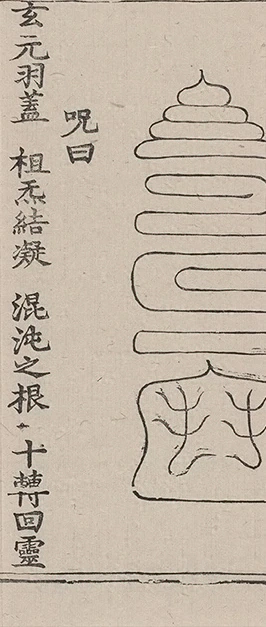 咒曰
玄元羽蓋　祖炁結凝　混沌之根　十轉回靈